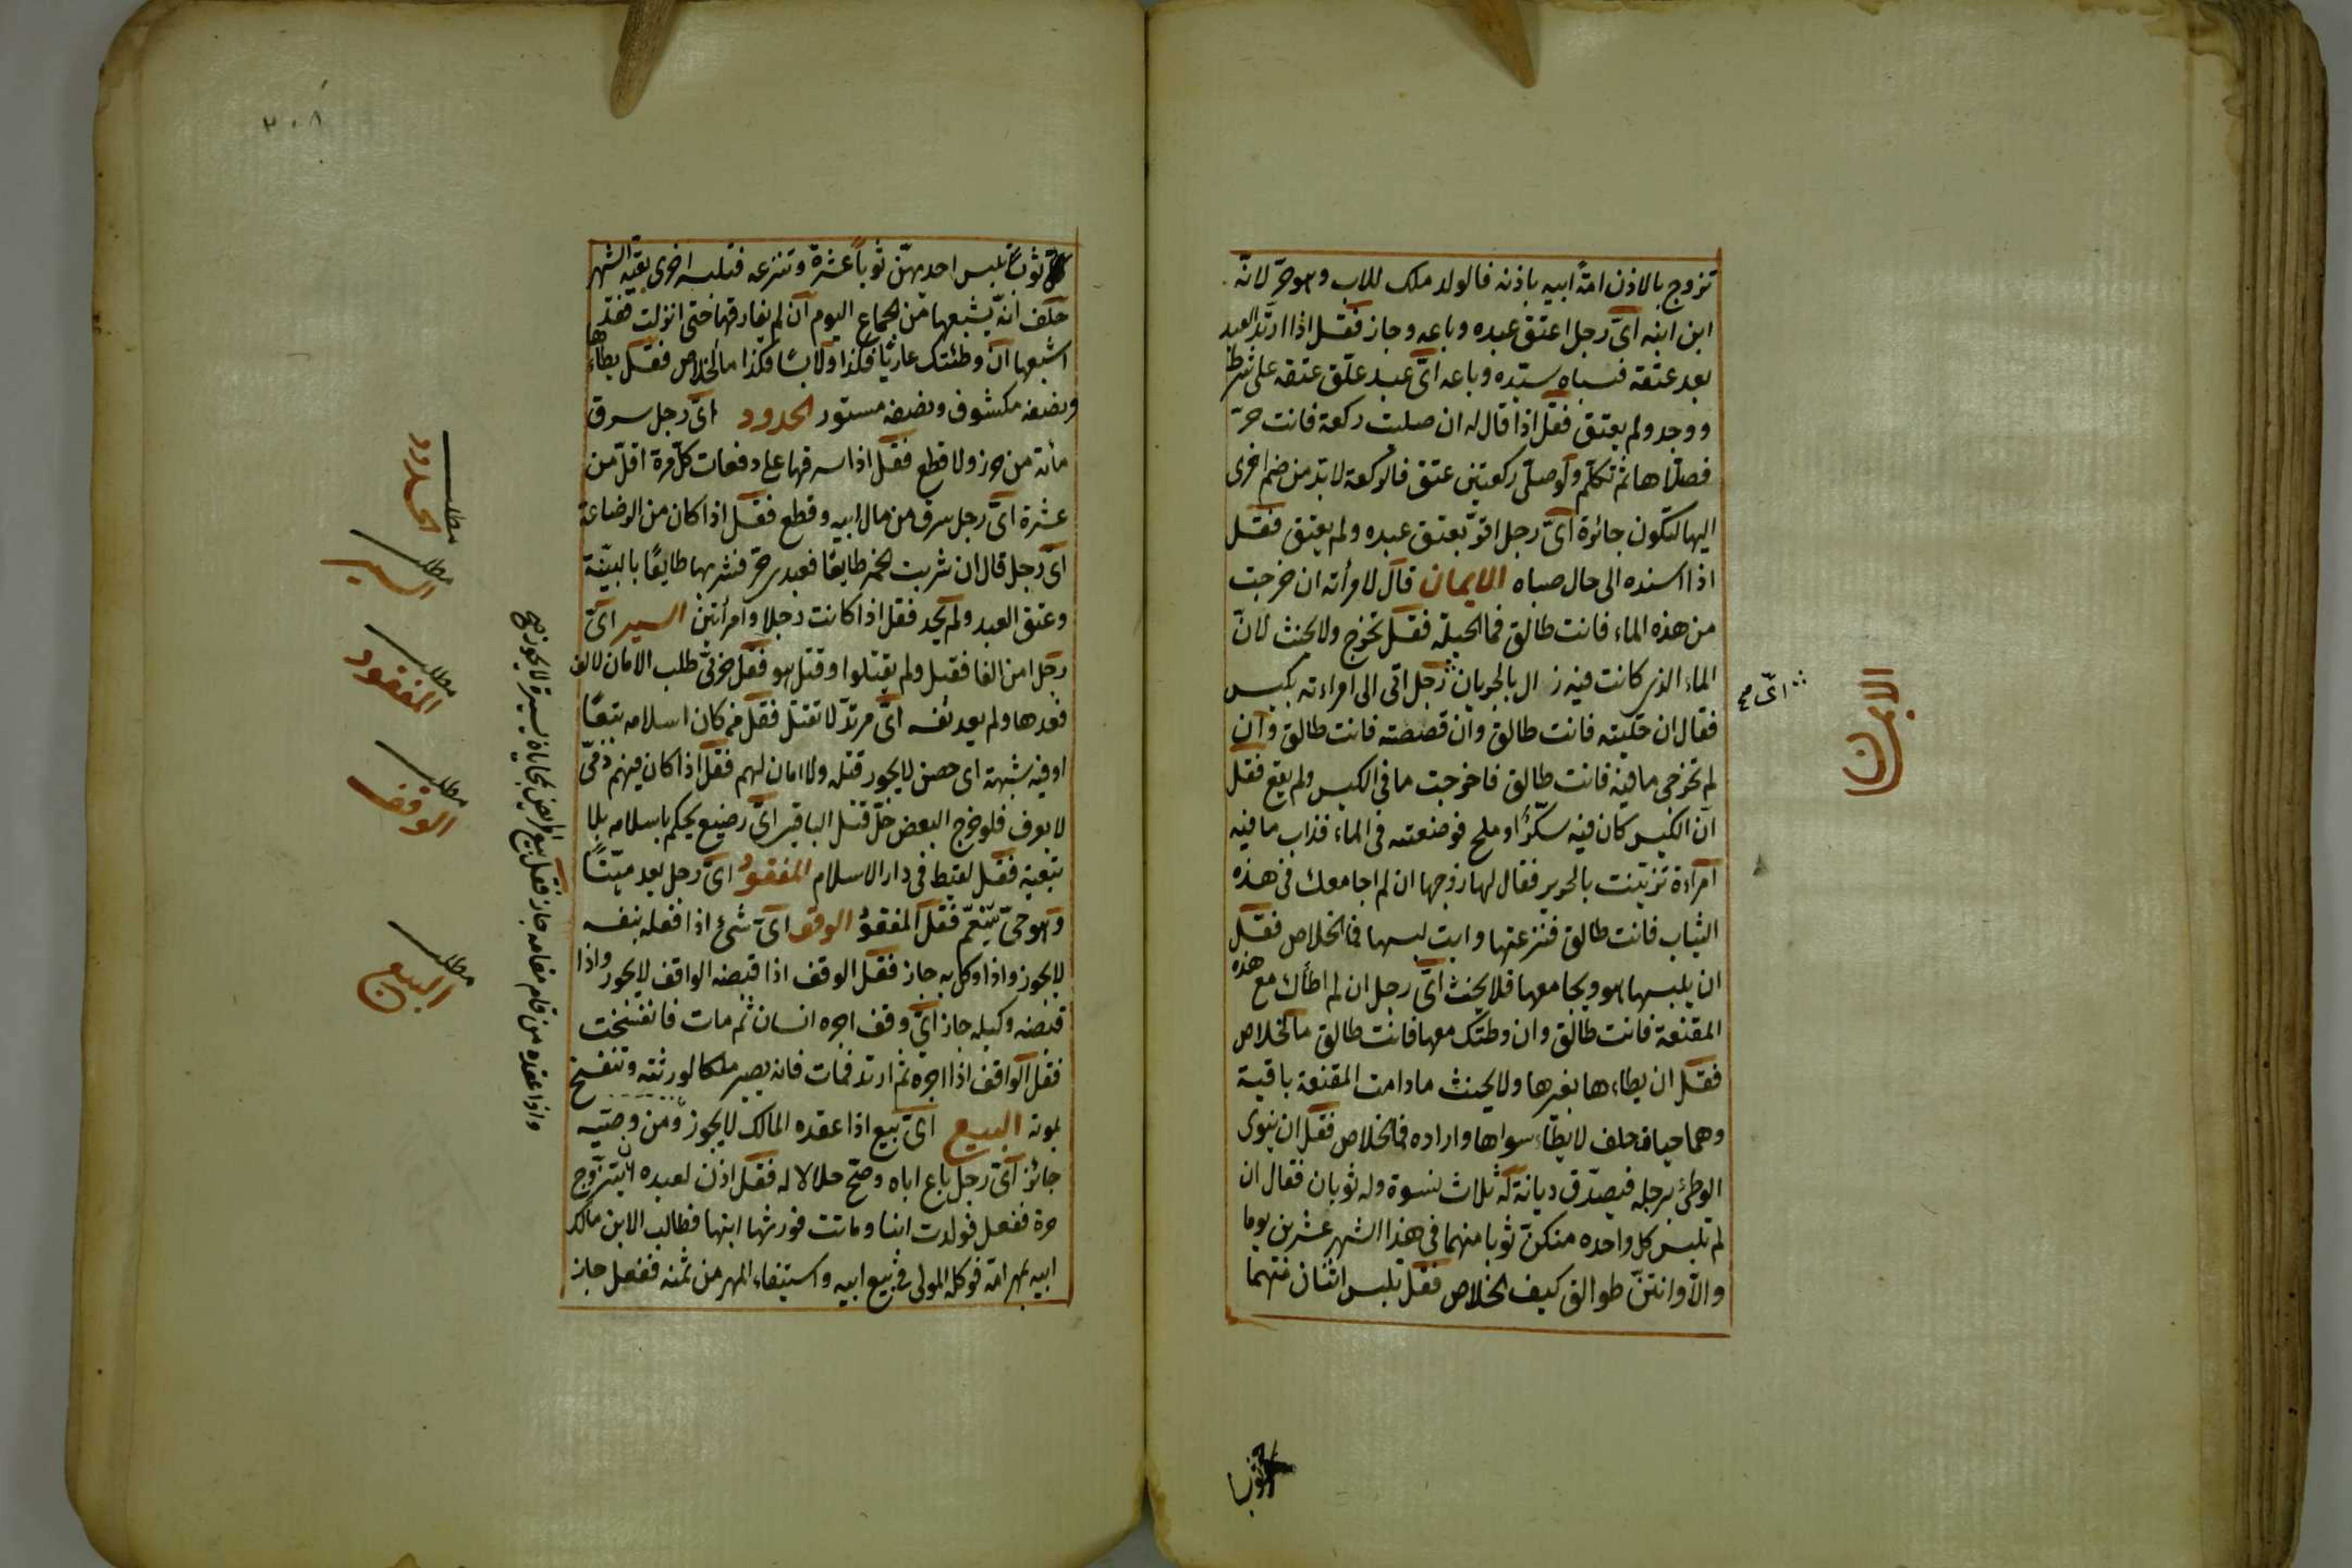 تزوج بالاذن امة ابيه باذنه فالولد ملك للاب وهو حر لانه
ابن ابنه اىّ رجل اعتق عبده وباعه وجاز فقل اذا ارتد العبد
بعد عتقه فسباه سيّده وباعه اىّ عبد علّق عتقه على شرط
ووجد ولم يعتق فقل اذا قال له ان صليت ركعة فانت حرّ
فصلّاها ثم تكلّم ولو صلّى ركعتين عتق فالركعة لا بد من ضم اخرى
اليها لتكون جائزة اىّ رجل اقرّ بعتق عبده ولم يعتق فقل
اذا اسنده الى حال صباه الايمان قال لامرأته ان خرجت
من هذه الماء فانت طالق فما الحيلة فقل تخرج ولا يحنث لانّ
الماء الذى كانت فيه زال بالجريان رجل اتى الى امراءته بكيس
فقال ان حلّيته فانت طالق وان قصصته فانت طالق وان
لم تخرجى ما فيه فانت طالق فاخرجت ما فى الكيس ولم يقع فقل
ان الكيس كان فيه سكّرًا وملح فوضعته فى الماء فذاب ما فيه
امراءة تزيّنت بالحرير فقال لها زوجها ان لم اجامعك فى هذه
الثياب فانت طالق فنزعتها وابت لبسها فما الخلاص فقل
ان يلبسها هو ويجامعها فلا يحنث اىّ رجل ان لم اطأك مع هذه
المقنعة فانت طالق وان وطئتك معها فانت طالق ما الخلاص
فقل ان يطاءها بغيرها ولا يحنث ما دامت المقنعة باقية
وهما حيان حلف لا يطاء سواها واراده فما الخلاص فقل ان ينوى
الوطئ برجله فيصدّق ديانة له ثلاث نسوة وله ثوبان فقال ان
لم تلبس كل واحده منكنّ ثوبا منهما فى هذا الشهر عشرين يوما
والا وانتنّ طوالق كيف الخلاص فقل تلبس اثنان منهما
اىّ صح
الايمان
ثوبا
٣٠٨
ثوبًا تلبس احديهنّ ثوبا عشرة وتنزعه فتلبسه اخرى بقيّة الشهر
حلف انّه يشبعها من الجماع اليوم ان لم يفارقها حتى انزلت فقد
اشبعها ان وطئتك عاريًا فكذا ولابسًا فكذا ما الخلاص فقل يطاءها
ونصفه مكشوف ونصفه مستور الحدود اىّ رجل سرق
مأئة من حرز ولا قطع فقل اذا سرقها على دفعات كلّ مرة اقلّ من
عشرة اىّ رجل سرق من مال ابيه وقطع فقل اذا كان من الرضاعة
اى رجل قال ان شربت الخمر طايعًا فعبدى حرّ فشربها طايعًا بالبيّنة
وعتق العبد ولم يحد فقل اذا كانت رجلا وامرأتين السير اىّ
رجل امن الفا فقتل ولم يقتلوا وقتل هو فقل حربىّ طلب الامان لالف
فعدها ولم يعد نفسه اىّ مرتدّ لا تقتل فقل من كان اسلامه تبعًا
او فيه شبهة اى حصن لا يجوز قتله ولا امان لهم فقل اذا كان فيهم ذمّى
لا يعرف فلو خرج البعض حلّ قتل الباقين اىّ رضيع يحكم باسلامه بلا
تبعيّة فقل لقيط فى دار الاسلام المفقود اىّ رجل يعد ميّتًا
وهو حىّ يتنعّم فقل المفقود الوقف اىّ شئ اذا فعله بنفسه
لا يجوز واذا وكل به جاز فقل الوقف اذا قبضه الواقف لا يجوز واذا
قبضه وكيله جاز اىّ وقف اجره انسان ثم مات فانفسخت
فقل الواقف اذا اجره ثم ارتد فمات فانه يصير ملكا لورثته وتنفسخ
بموته البيع اىّ بيع اذا عقده المالك لا يجوز ومن وصيّه
جائز اىّ رجل باع اباه وصحّ حلالا له فقل اذن لعبده ان يتزوج
حرة ففعل فولدت ابنا وماتت فورثها ابنها فطالب الابن مالك
ابيه بمهر امّه فوكله المولى فى بيع ابيه واستيفاء المهر من ثمنه ففعل جاز
مطلب
الحدود
مطلب
السير
مطلب
المفقود
مطلب
الوقف
مطلب
البيع
واذا عقده من قام مقامه جاز فقل بيع المريض بمحاباة يسيرة لا يجوز صح